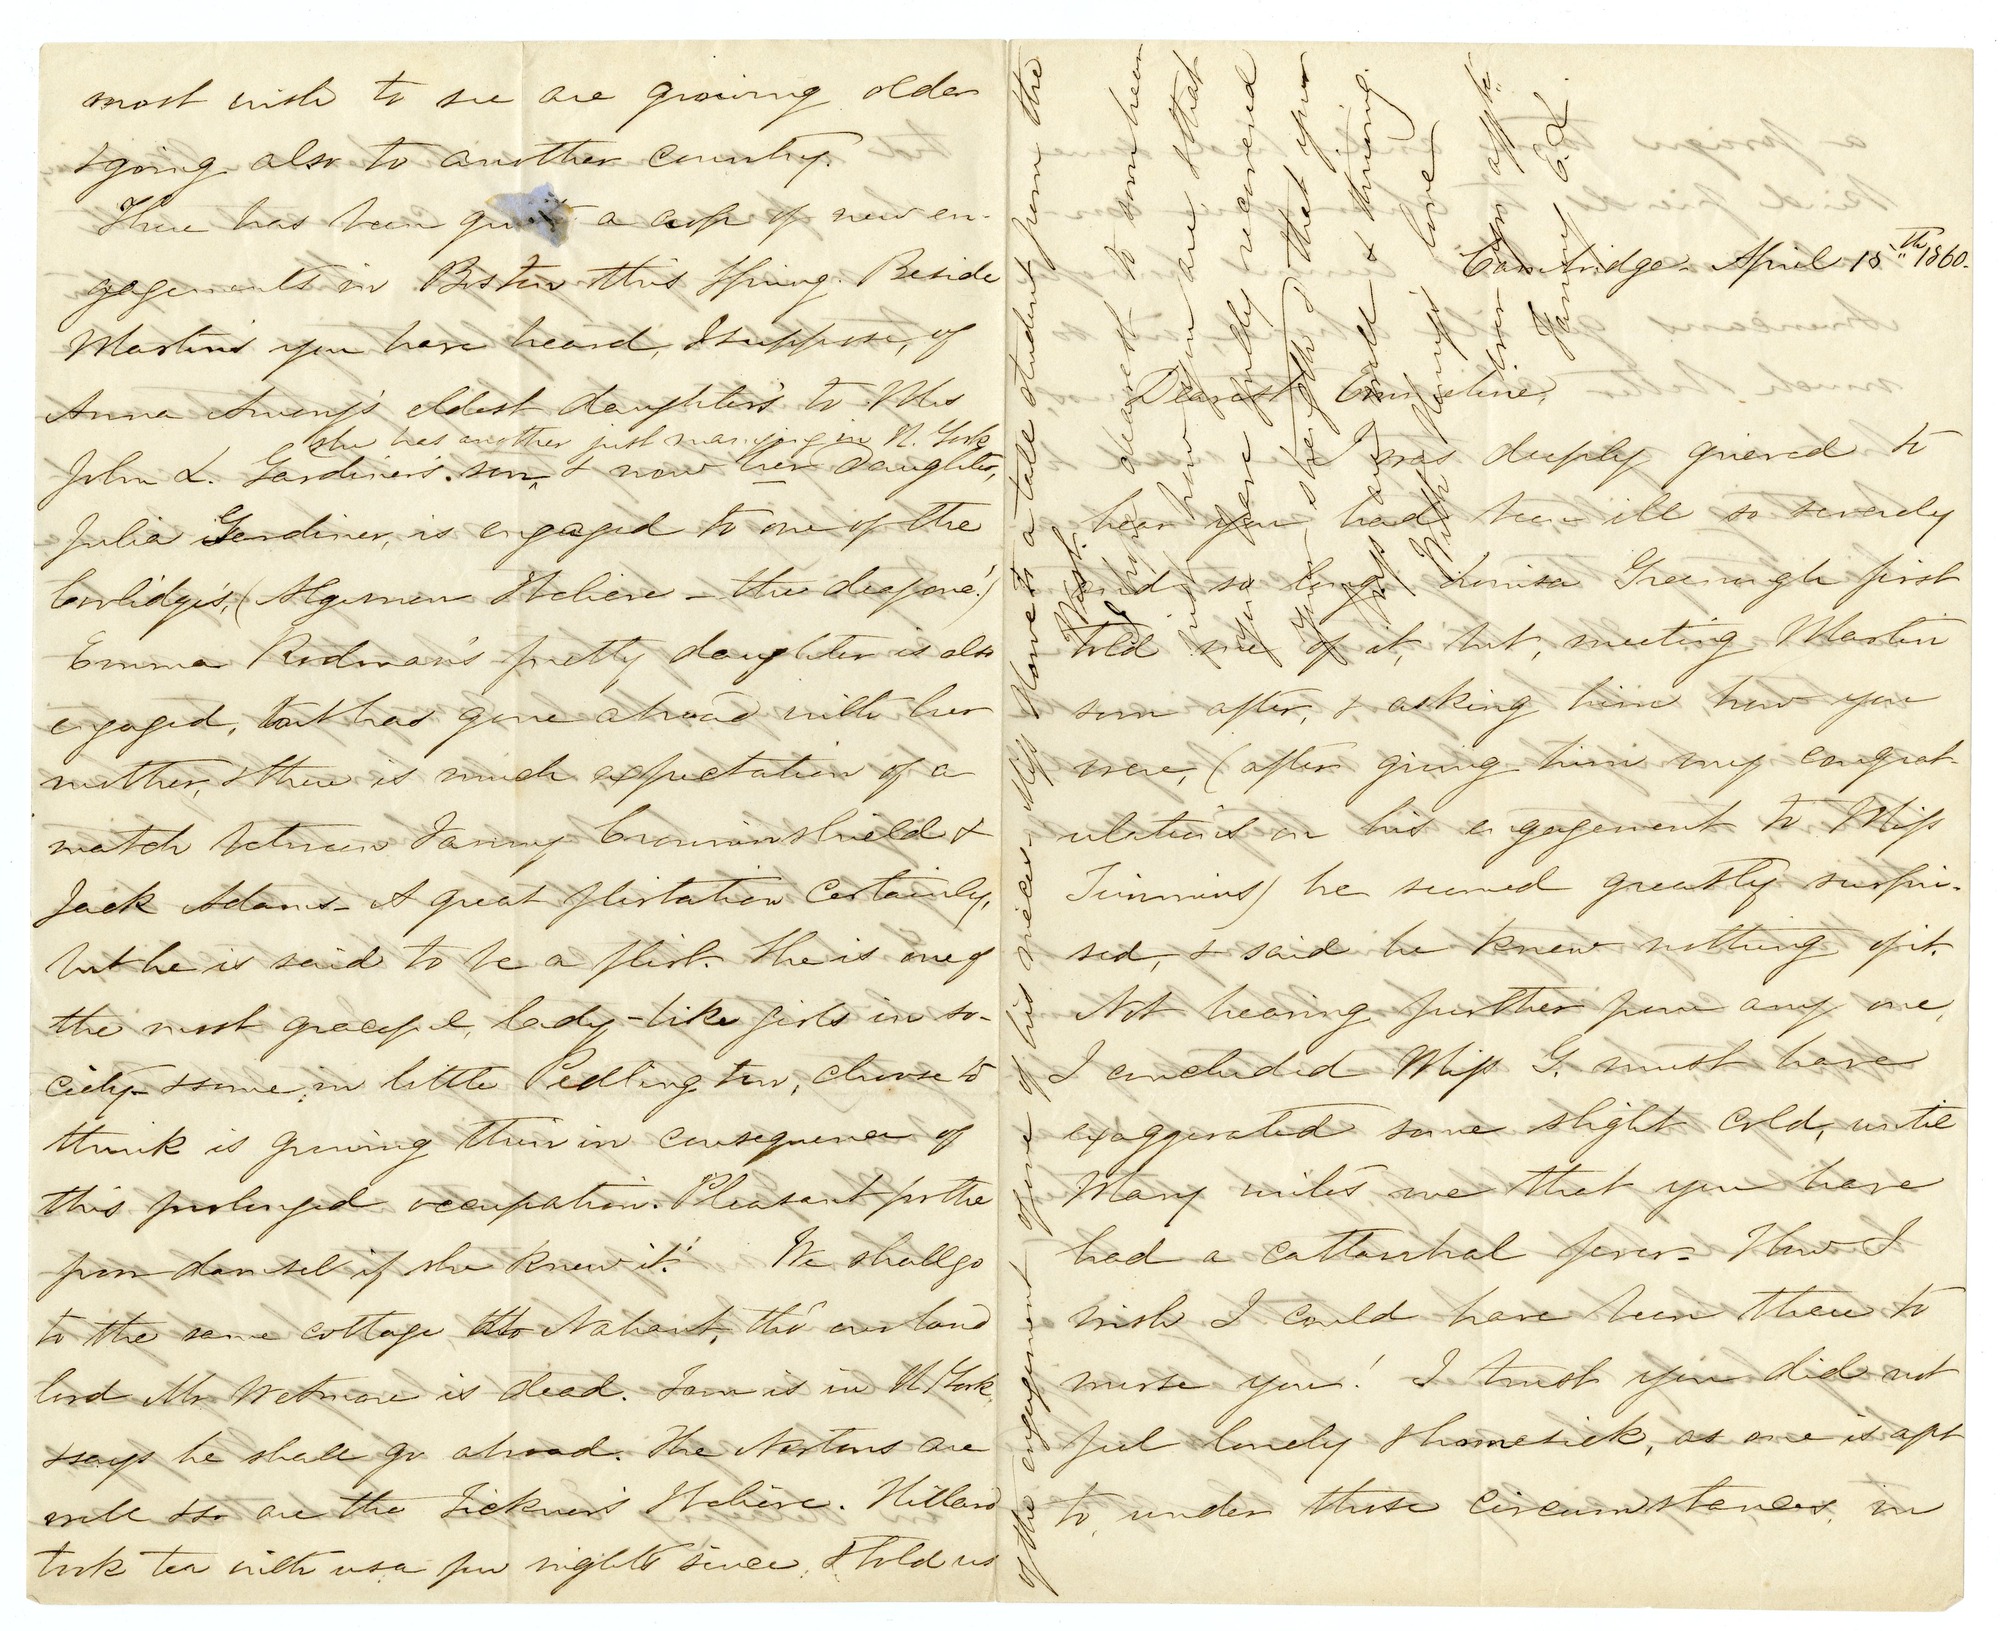 Cambridge - April 15th 1860.
Dearest Emmeline,
I was deeply grieved to
hear you had been ill so severely
and so long. Louisa Greenough first
told me of it, but, meeting Martin
soon after, & asking him how you
were, (after giving him my congrat-
ulations on his engagement to Miss
Timmins) he seemed greatly surpri-
sed, & said he knew nothing of it.
Not hearing further from any one,
I concluded Miss G. must have
exaggerated some slight cold, until
Mary writes me that you have
had a cattarrhal fever - How I
wish I could have been there to
nurse you! I trust you did not
feel lonely & homesick, as one is apt
to under those circumstances, in
most wish to see are growing older
& going also to another country.
There has been quite a crop of new en-
gagements in Boston this Spring. Beside
Martin's you have heard, I suppose, of
Anna Amory's eldest daughter's to Mrs
John L. Gardiner's son, & now her Daughter,
she has another just marrying in N. York
Julia Gardiner, is engaged to one of the
Coolidge's, (Algernon I believe - the deaf one!)
Emma Rodman's pretty daughter is also
engaged, but has gone abroad with her
mother, & there is much expectation of a
match between Fanny Crowninshield &
Jack Adams - A great flirtation certainly,
but he is said to be a flirt. She is one of
the most graceful, lady-like girls in so-
ciety - & some, in little Pedlington, choose to
think is growing thin in consequence of
this prolonged occupation. Pleasant for the
poor damsel if she knew it! We shall go
to the same cottage at Nahant, tho' our land
lord Mr Wetmore is dead. Tom is in N. York
& says he shall go abroad. The Nortons are
well & so are the Ticknors I believe. Hillard
took tea with us a few nights since, & told us
of the engagement of one of his nieces - Miss Howe to a tall student from the
West.
Goodbye dearest & do soon hear
just how you are, & that
you are fully recovered
Your that your
boys are well & thriving.
With Mary's love
Ever yr affte
Fanny E. L.